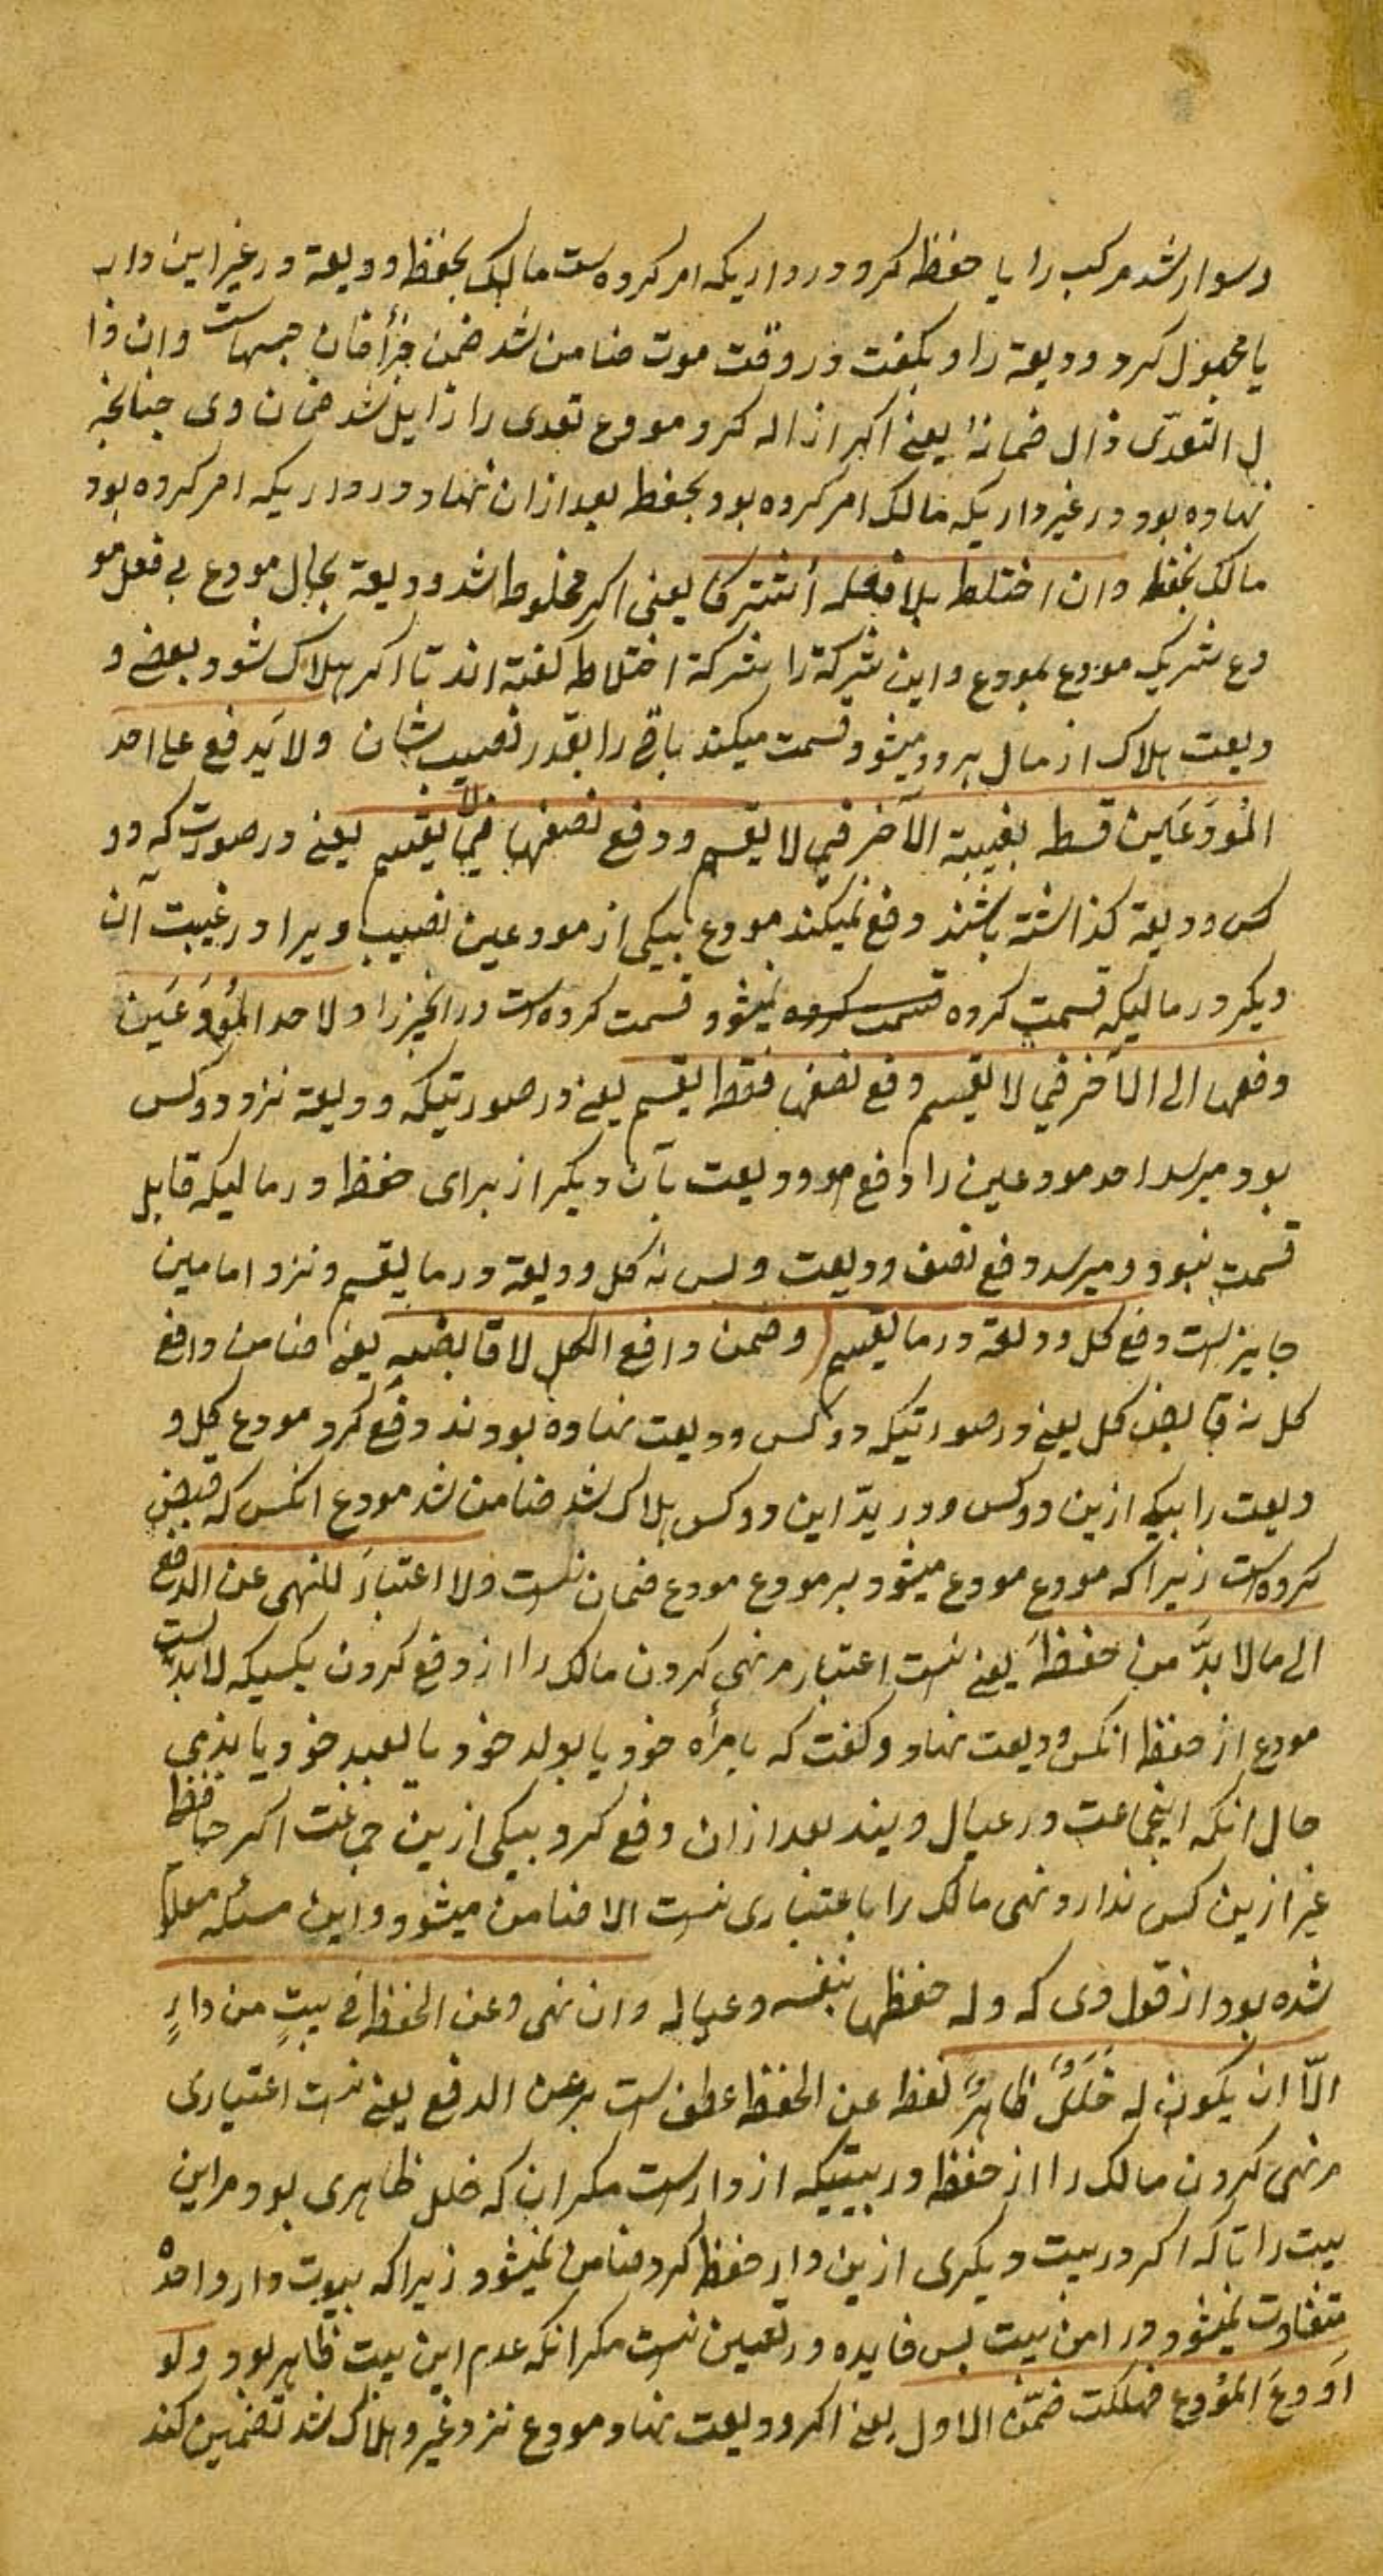 و سوار شد مرکب را یا حفظ کرد در داریکه امر کرده ست مالک بحفظ ودیعة در غیر این دار
یا مجهول کرد ودیعة را و بکفت در وقت موت ضامن شد ضمن جزأ فان جمهاست وان ذا
ل التعدّی زال ضمانهٗ یعنے اکر ازاله کرد مودع تعدی را زایل شد ضمان وی چنانچه
نهاده بود در غیر داریکه مالک امر کرده بود بحفظ بعد ازان نهاد در داریکه امر کرده بود
مالک بحفظ وان اختلط بلا فعله اشترکا یعنی اکر مخلوط شد ودیعة بمال مودع بی فعل مو
دع شریک مودع بمودع و این شرکة را شرکة اختلاط کفته اند تا اکر هلاک شود بعضے و
دیعت هلاک از مال هردو میشود قسمت میکند باقی را بقدر نصیب شان ولا یَدفع علے احد
المُودَعَین قسط بغیبة الآخر فی لا یقسم ودفع نصفها فی یقسم یعنے در صورت که دو
کس ودیعة کذاشته باشند دفع نمیکند مودع بیکی از مودعین نصیب ویرا در غیبت آن
دیکر در مالیکه قسمت کرده قسمت کرده نمیشود قسمت کرده ست در انجیزرا ولاحد المُودَعَین
دفعها الی الآخر فی لا یقسم دفع نصفها فقط یقسم یعنے در صورتیکه ودیعة نزد دو کس
بود میرسد احد مودعین را دفع مودیعت بآن دیکر از برای حفظ در مالیکه قابل
قسمت نبود و میرسد دفع نصف ودیعت وبس نه کل ودیعة در ما یقسم ونزد امامین
جایز است دفع کل ودیعة در ما یقسم وضمن دافع الکل لا قابضه یعنے ضامن دافع
کل نه قابض کل یعنے در صورتیکه دو کس ودیعت نهاده بودند دفع کرد مودع کل و
دیعت را بیکے ازین دو کس ودر یدّ این دو کس هلاک شد ضامن شد مودع انکس که قبض
کرده است زیرا که مودع مودع میشود بر مودع مودع ضمان نیست ولا اعتبارَ للنهی عن الدفع
الی ما لا بدَّ من حفظهٖ یعنے نیست اعتبار مر نهی کردن مالک را از دفع کردن بکسیکه لا بد است
مودع از حفظ انکس ودیعت نهاد و کفت که بامرأه خود یا بولد خود یا بعبد خود یا بذی
حال انکه اینجماعت در عیال ویند بعد ازان دفع کرد بیکی ازین جماعت اکر حافظ
غیر ازین کس ندارد نهی مالک را با عتباری نیست الا ضامن میشود و این مسئله معلوم
شده بود از قول وی که وله حفظها بنفسه وعیاله وان نهی وعن الحفظ فی بیتٍ من دارٍ
الّا ان یکون له خَلَلٌ ظاهرٌ لفظ عن الحفظ عطف است بر عن الدفع یعنے نیست اعتباری
مر نهی کردن مالک را از حفظ در بیتیکه از دار است مکر ان که خلل ظاهری بود مر این
بیت را تا که اکر در بیت دیکری ازین دار حفظ کرد ضامن نمیشود زیرا که بیوت دار واحده
متفاوت نمیشود در امن بیت بس فایده در تعین نیست مکر انکه عدم این بیت ظاهر بود ولو
اَودعَ المُودع فهلکت ضمّن الاول یعنے اکر ودیعت نهاد مودع نزد غیر و هلاک شد تضمین کند